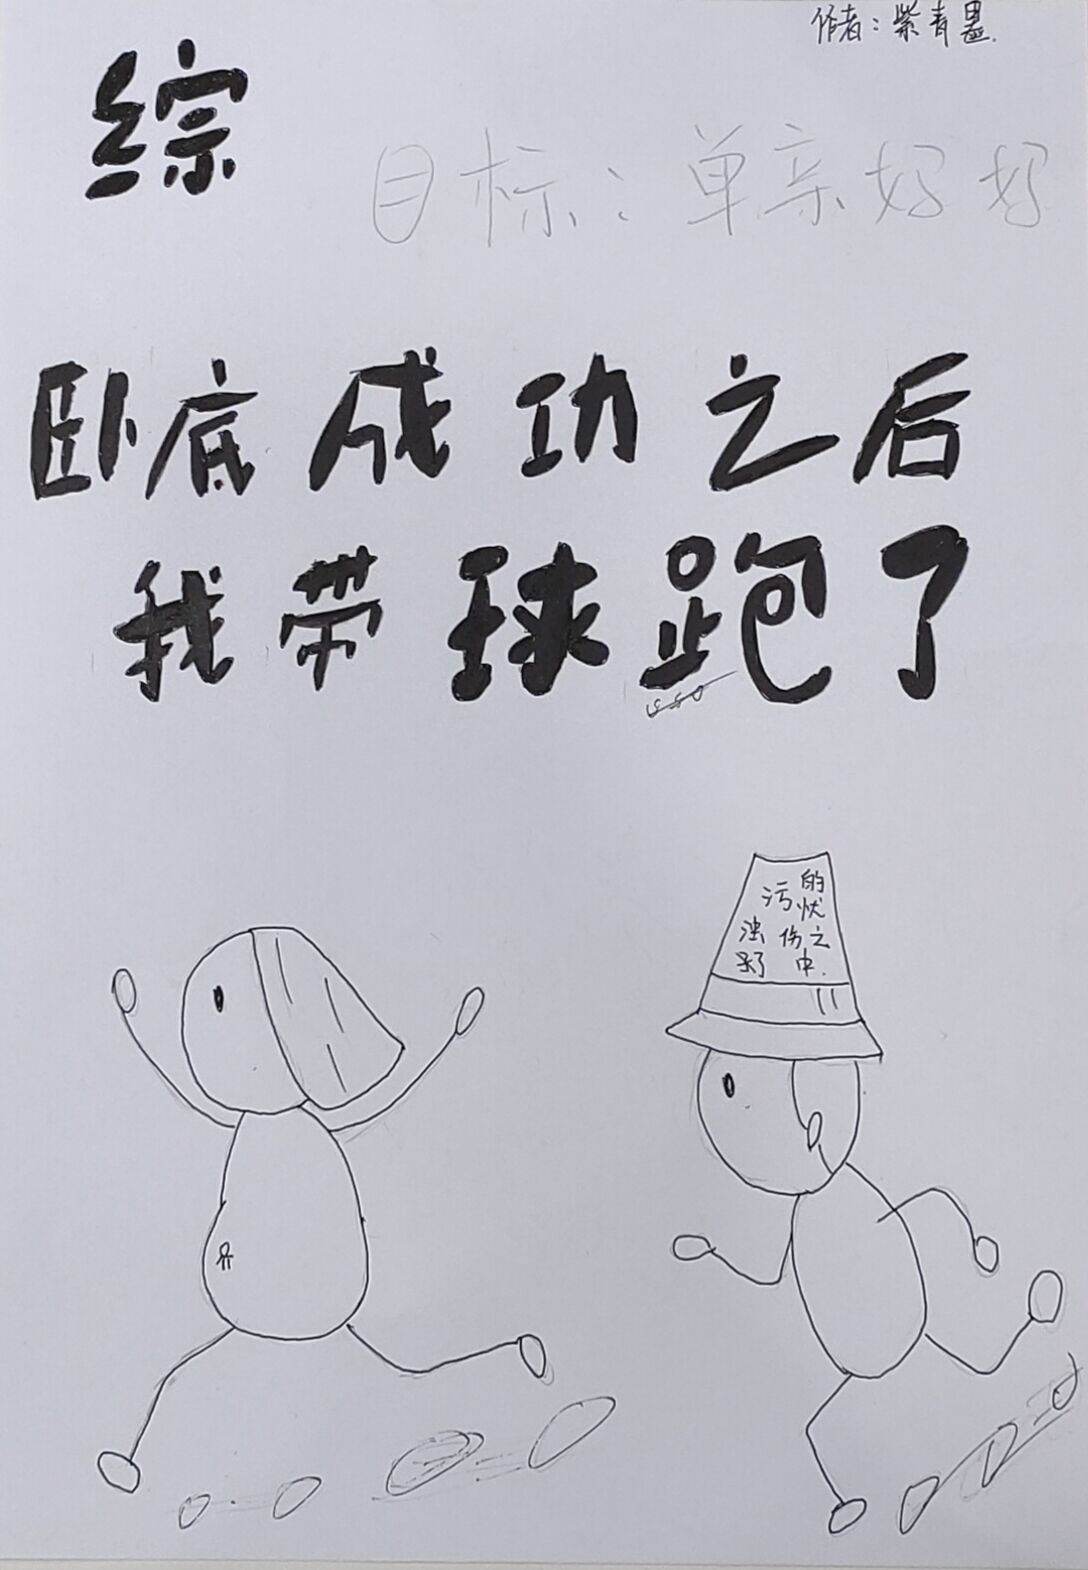 作者：紫青墨.
综
目标：单亲好好
卧底成功之后
我带球跑了
的忧之中.
污伤
浊了